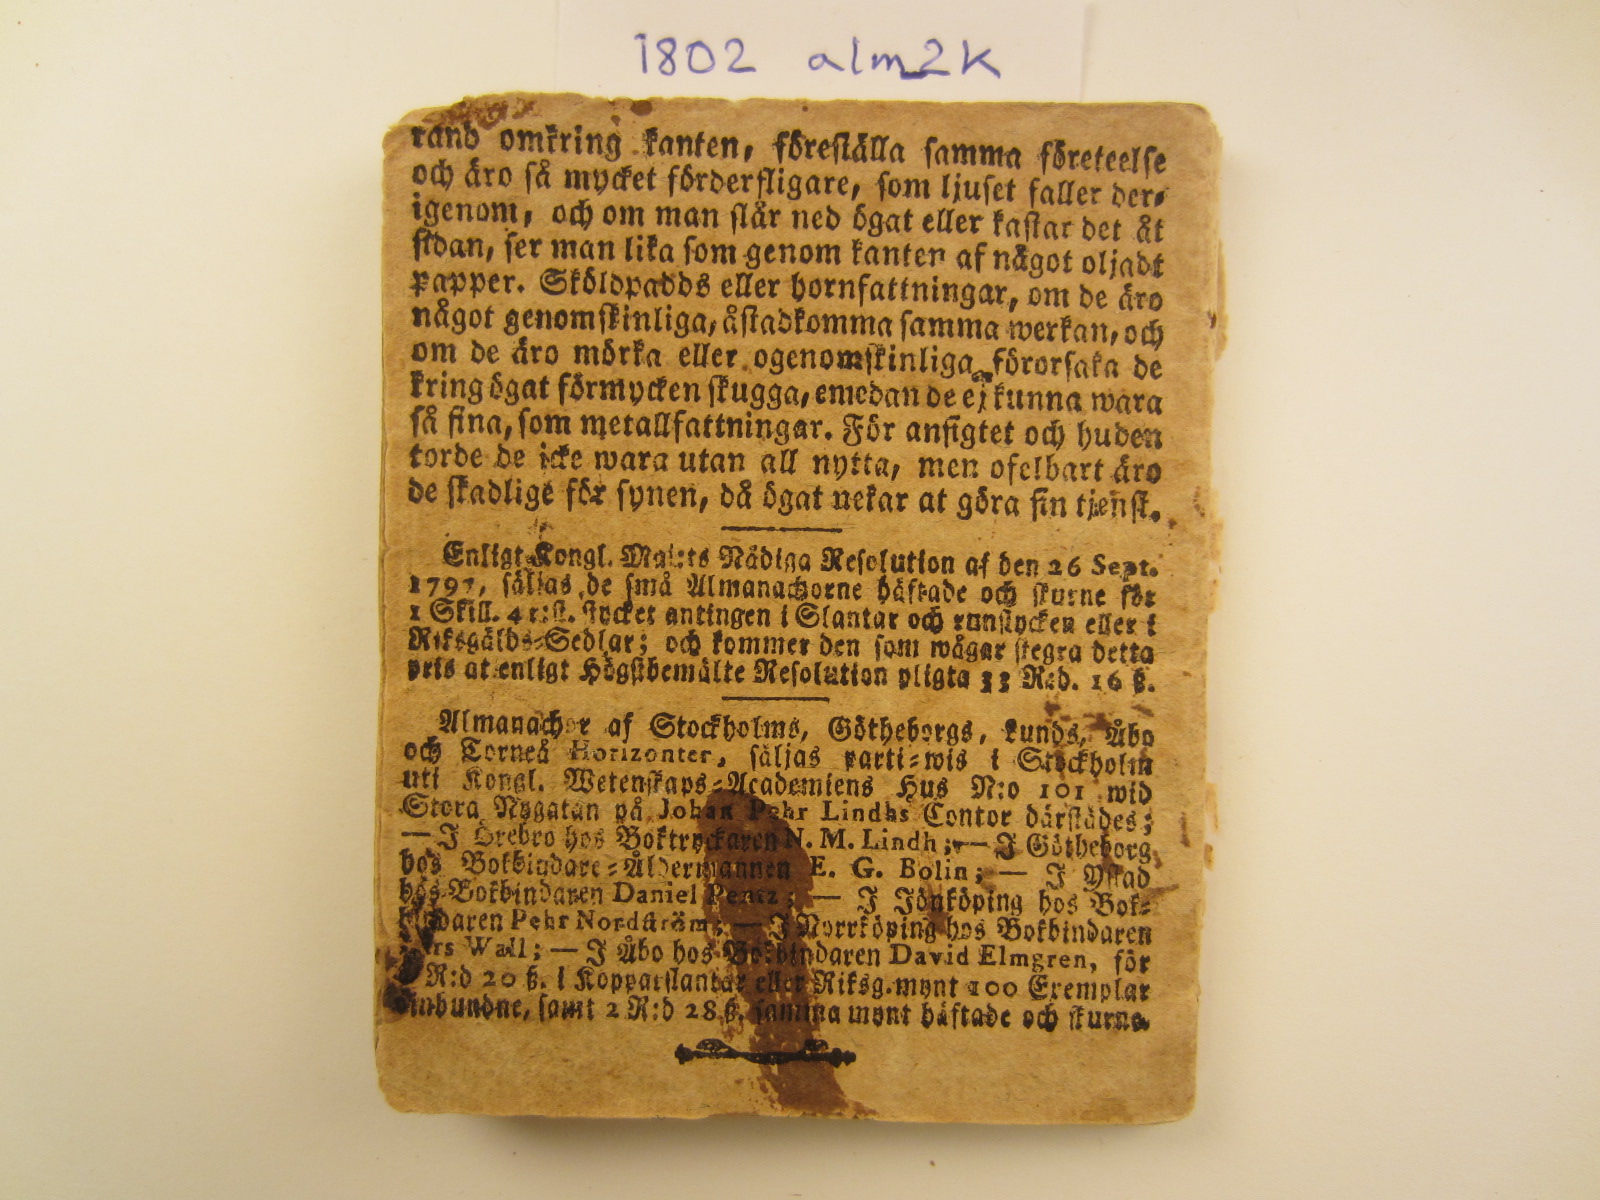 1802 alm2k
rand omkring kanten, föreställa samma företeelse
och äro så mycket förderfligare, som ljuset faller der-
igenom, och om man slår ned ögat eller kastar det åt
sidan, ser man lika som genom kanten af något oljadt
papper. Sköldpadds eller hornfattningar, om de äro
något genomskinliga, åstadkomma samma werkan, och
om de äro mörka eller ogenomskinliga förorsaka de
kring ögat förmycken skugga, emedan de ej kunna wara
så fina, som metallfattningar. För ansigtet och huden
torde de icke wara utan all nytta, men ofelbart äro
de skadlige för synen, då ögat nekar at göra sin tjenst.
Enligt Kongl. Maj:ts Nådiga Resolution af den 26 Sept.
1797, säljas de små Almanachorne häftade och skurne för
1 Skill. 4 r:st. stycket antingen i Slantar och runstycken eller i
Riksgälds-Sedlar; och kommer den som wågar stegra detta
pris at enligt Högstbemälte Resolution pligta 33 R:d. 16 ß.
Almanachor af Stockholms, Götheborgs, Lunds, Åbo
och Torneå Horizonter, säljas parti-wis i Stockholm
uti Kongl. Wetenskaps-Academiens Hus N:o 101 wid
Stora Nygatan på Johan Pehr Lindhs Contor därstädes;
— I Örebro hos Boktryckaren N. M. Lindh; — I Götheborg
hos Bokbindare-Åldermannen E. G. Bolin; — I Ystad
hos Bokbindaren Daniel Pentz; — I Jönköping hos Bok-
bindaren Pehr Nordström; — I Norrköping hos Bokbindaren
Wall; — I Åbo hos Bokbindaren David Elmgren, för
R:d 20 ß. i Kopparslantar eller Riksg.mynt 100 Exemplar
oinbundne, samt 2 R:d 28 ß. samma mynt häftade och skurne.